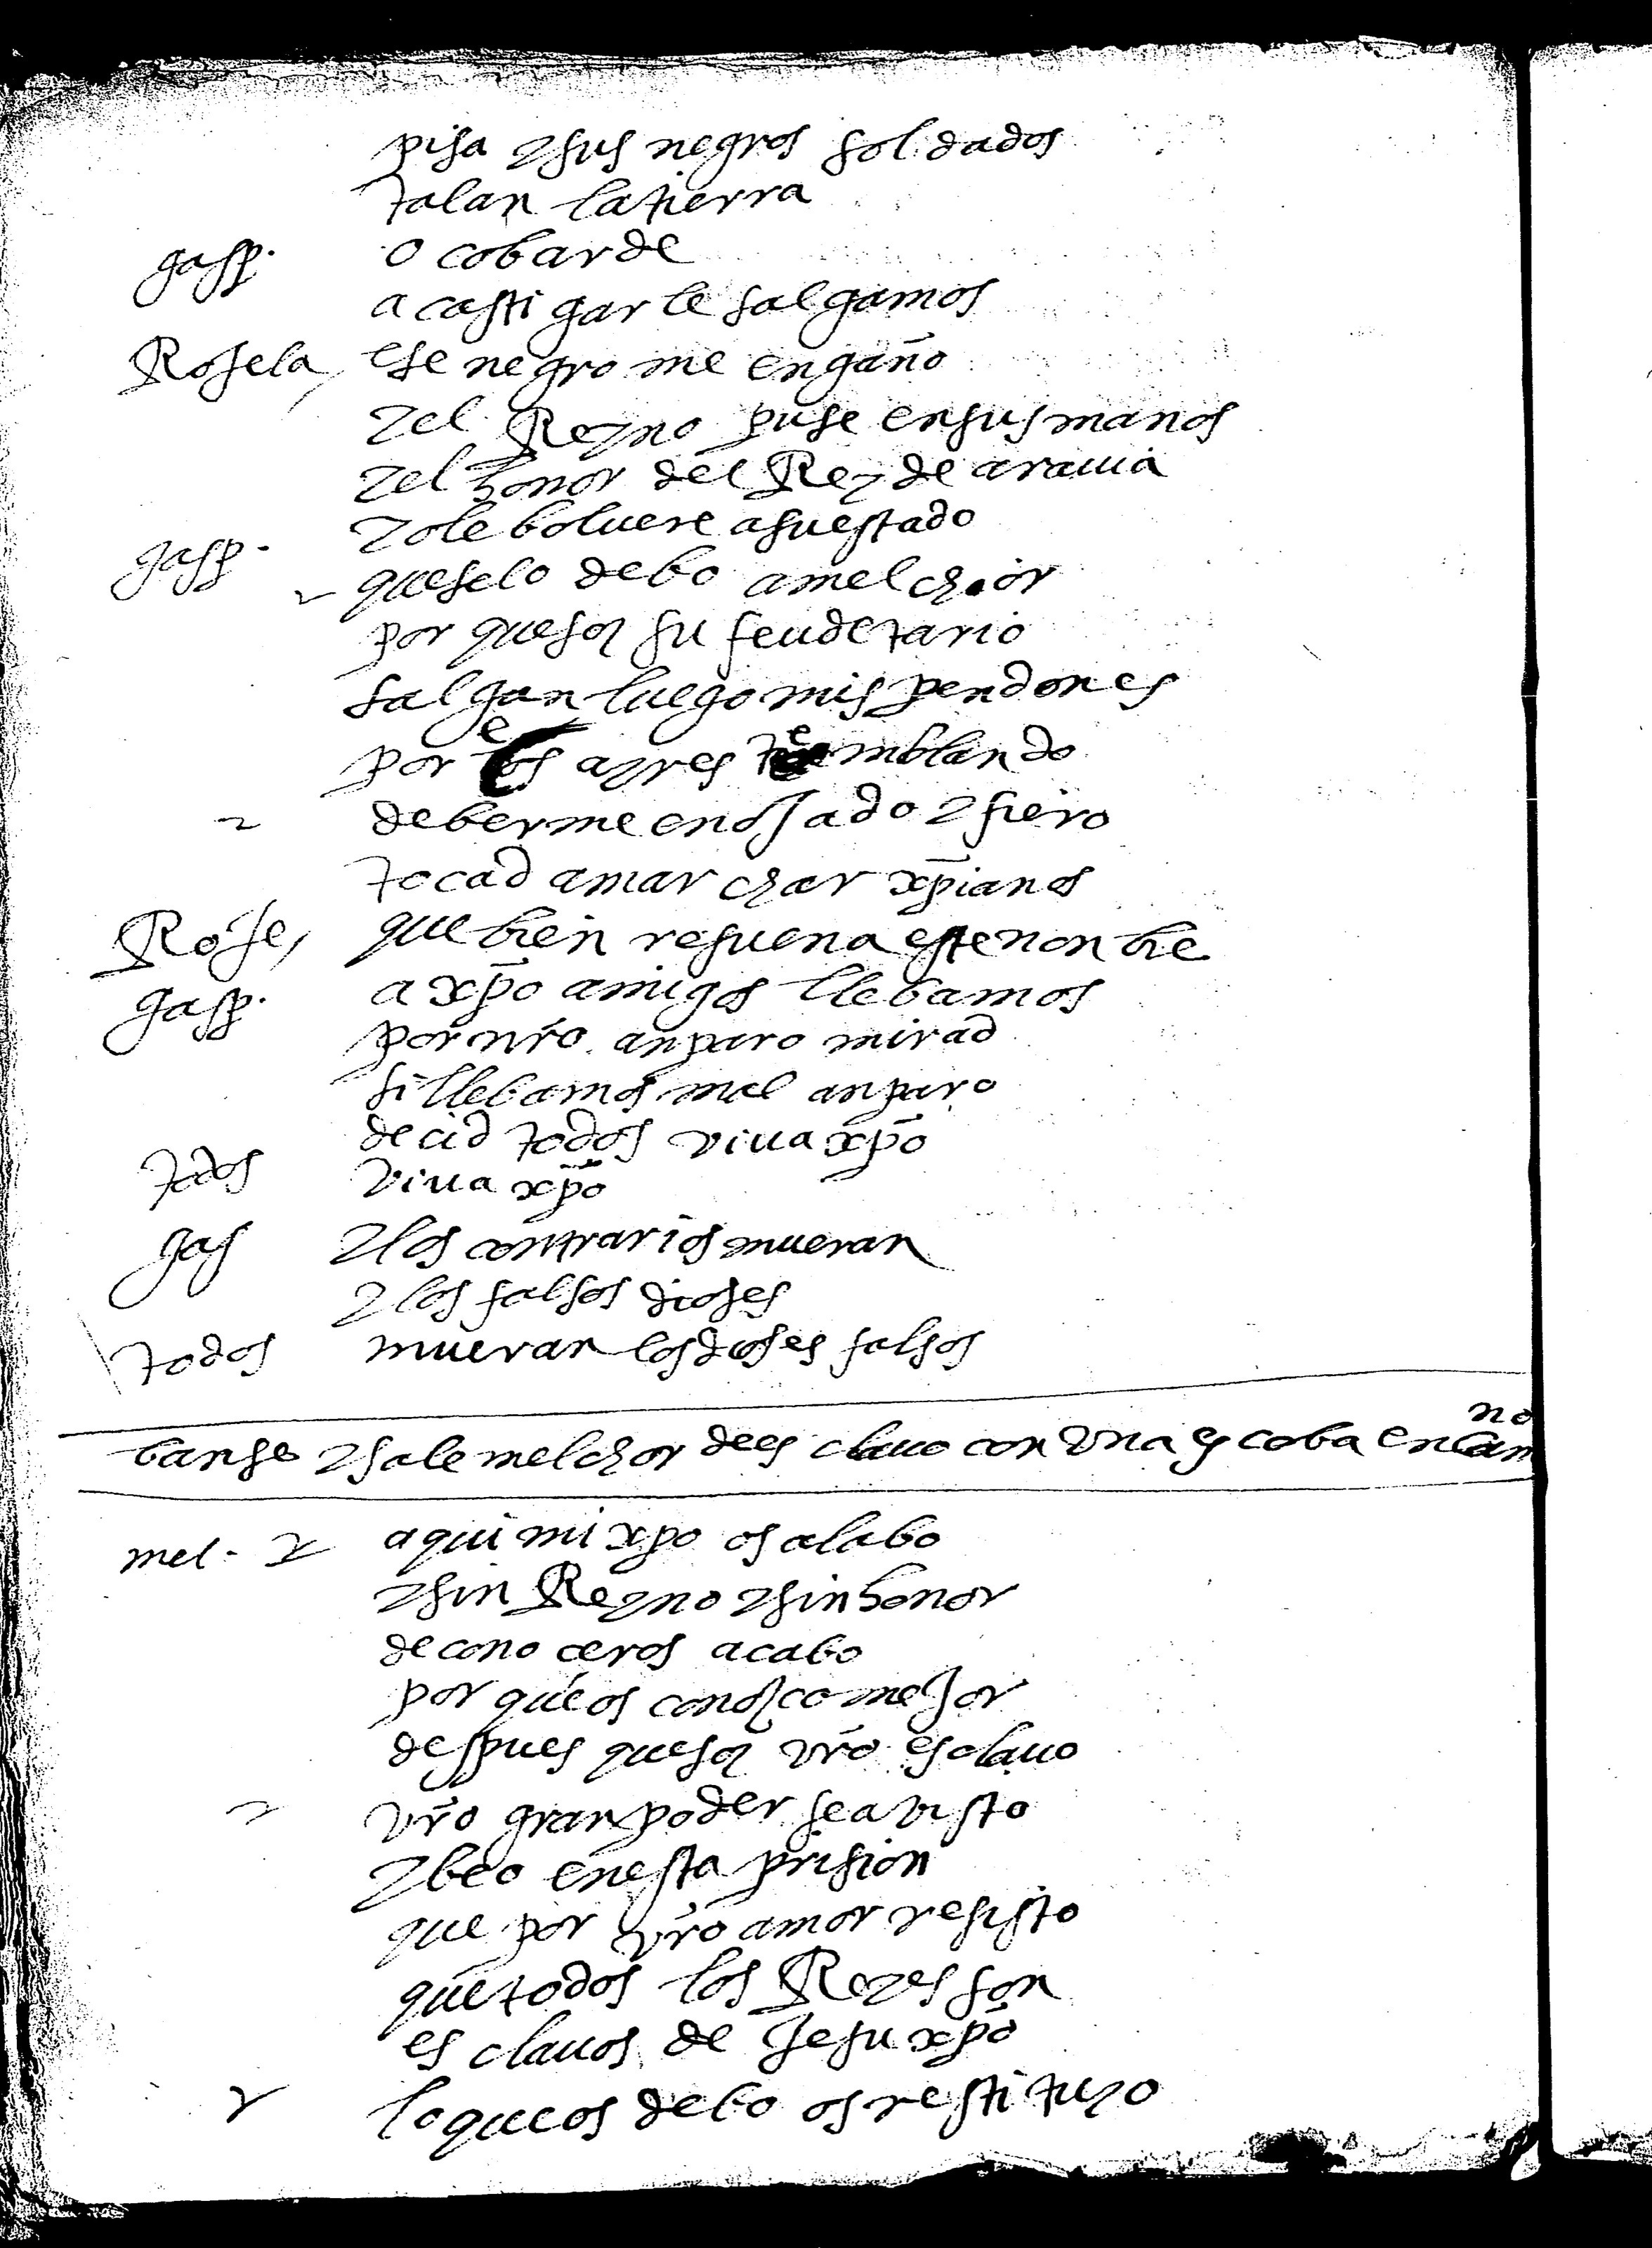 pisa y sus negros soldados
talan la tierra
gasp. o cobarde
a castigarle salgamos
Rosela, ese negro me engaño
y el Reyno puse en sus manos
y el honor del Rey de arauia
gasp. yo le boluere a su estado
que se lo debo a melchor
por que soy su feudetario
salgan luego mis pendones
por es ayres temblando
de berme enojado y fiero
tocad a marchar xp̄ianos
Rose, que bien resuena este nonbre
gasp. a xp̄o amigos llebamos
por nr̄o anparo mirad
si llebamos mal anparo
decid todos viua xp̄o
todos viua xp̄o
gas y los contrarios mueran
y los falsos dioses
todos mueran los dioses falsos
banse y sale melchor de esclauo con vna escoba en la mano
mel. aqui mi xpo os alabo
y sin Reyno y sin honor
de conoceros acabo
por que os conozco mejor
despues que soy vr̄o esclauo
vr̄o gran poder se a visto
y beo en esta prision
que por vr̄o amor resisto
que todos los Reyes son
esclauos de Jesu xp̄o
lo que os debo os restituyo